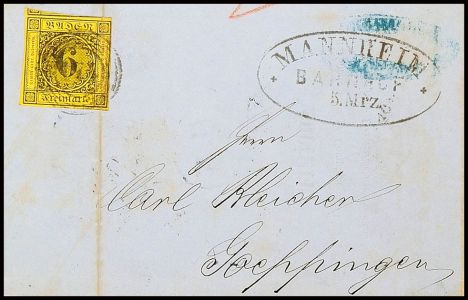 BADEN
6
Freimarke
MANNHEIM
BAHNHOF
5. Mrz.
Herrn
Carl Bleicher
Goeppingen